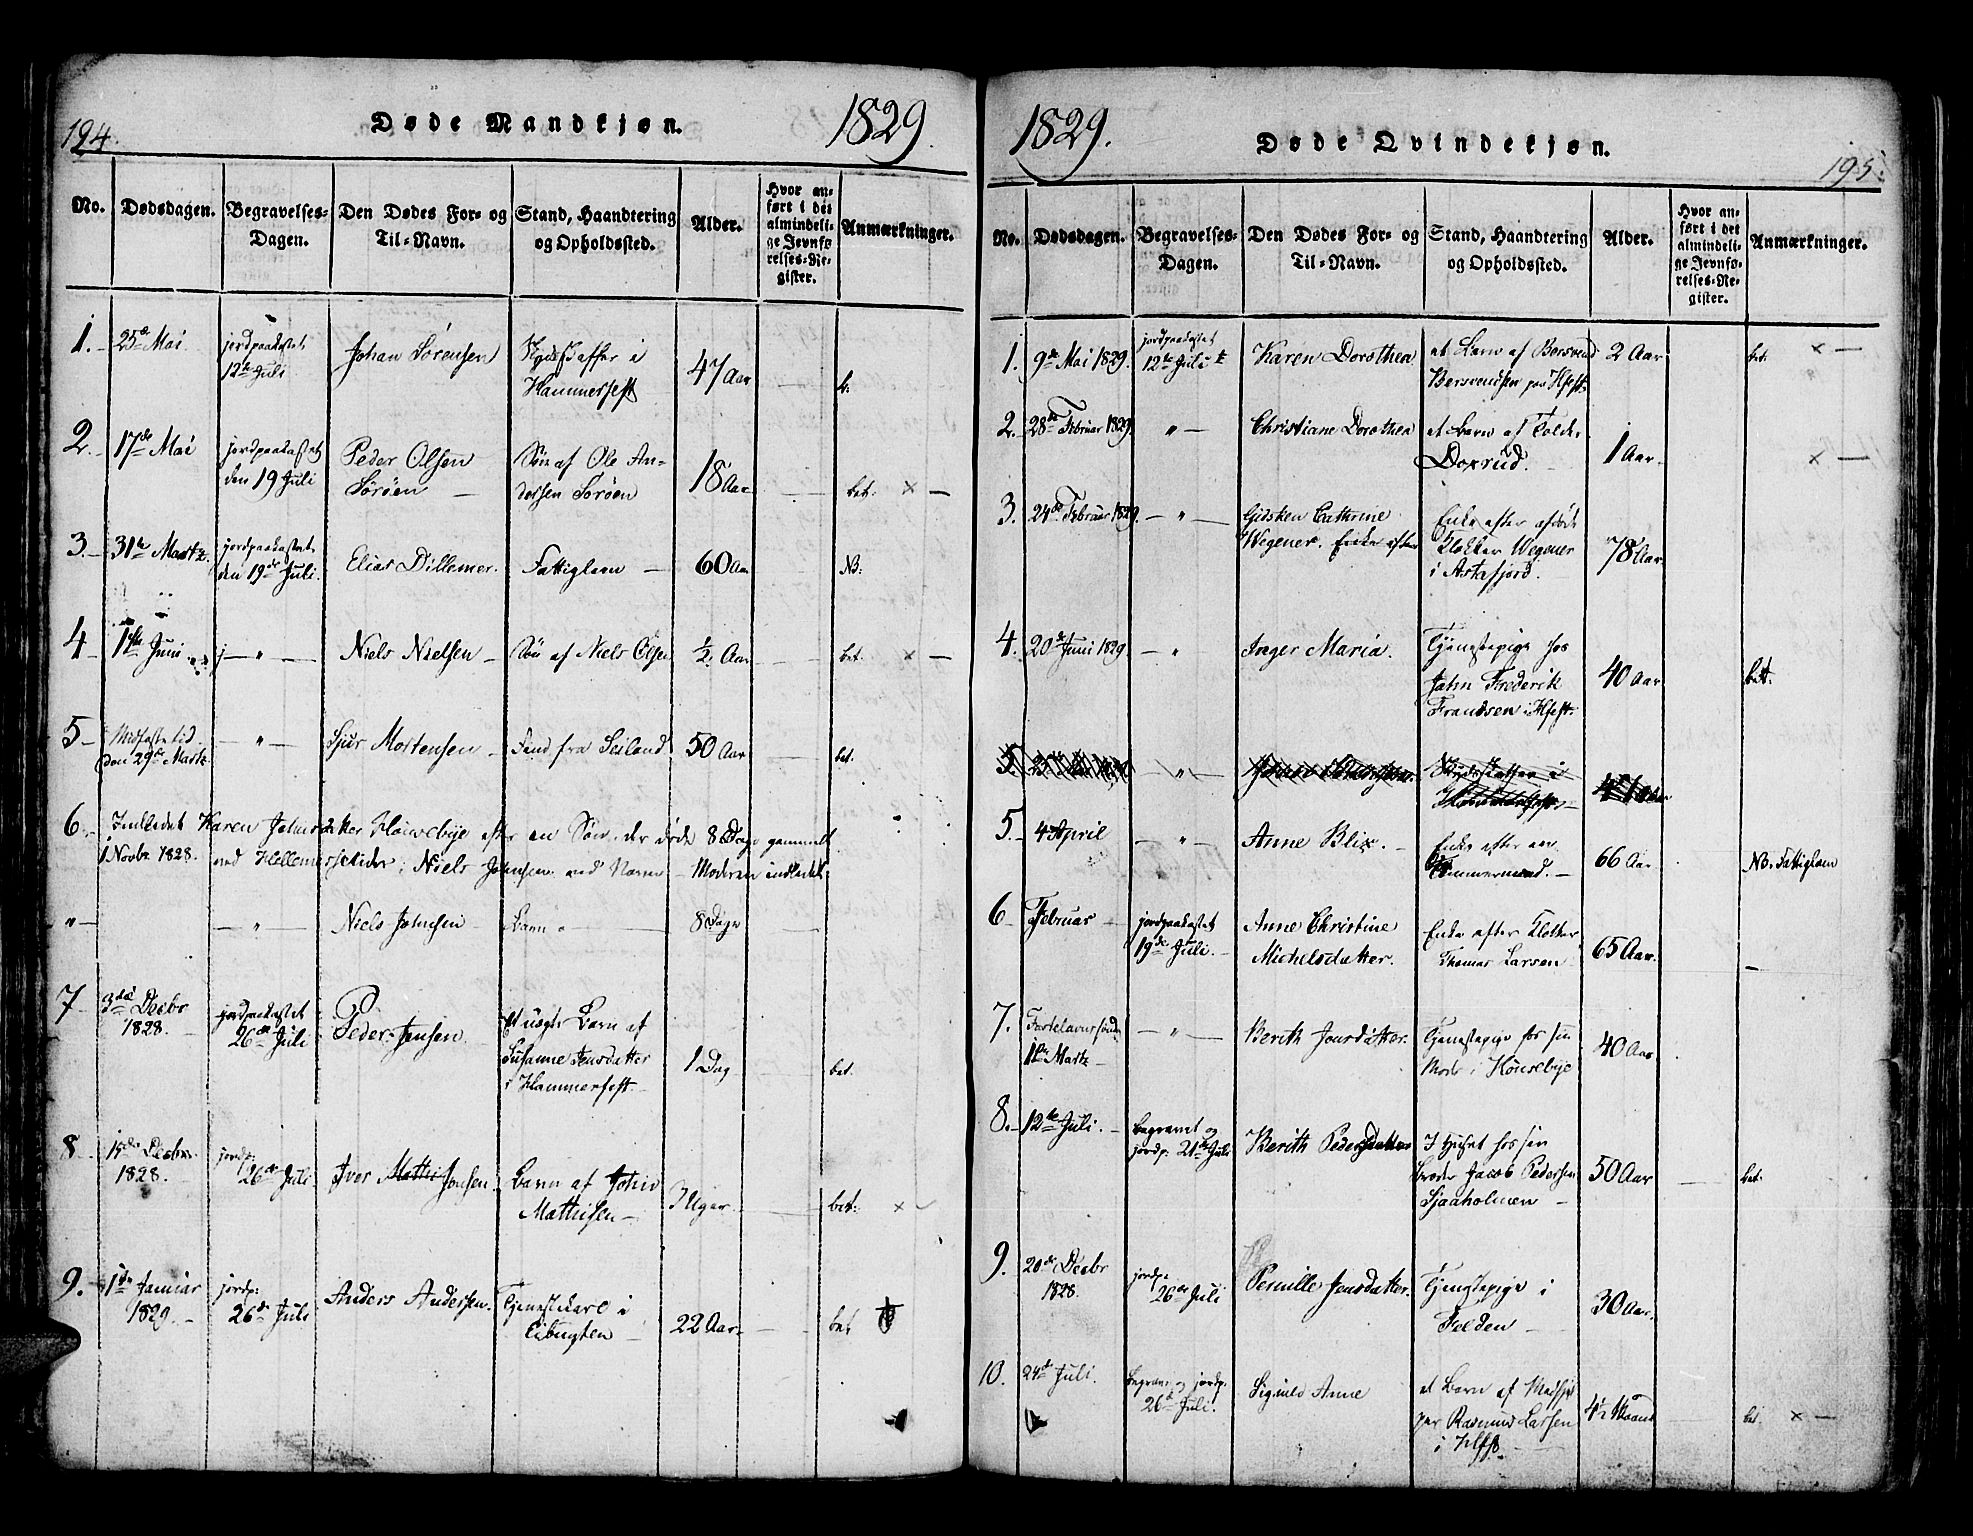 194.
Døde Mandkjøn.
1829.
No.
Dødsdagen.
Begravelses-
Dagen.
Den Dødes For- og
Til-Navn.
Stand, Haandtering
og Opholdssted.
Alder.
Hvor an-
ført i det
almindeli-
ge Jevnfø-
relses-Re-
gister.
Anmærkninger.
1. 25de Mai
jordpaakastet
12te Juli
Johan Sörensen
Skydsskaffer i
Hammerfest
47 Aar
b.
2. 17de Mai
jordpaakastet
den 19 Juli
Peder Olsen
Söröen
Sön af Ole An-
dersen Söröen
18 Aar
bet: × —
3. 31te Martz.
jordpaakastet
den 19de Juli.
Elias Dillemer.
Fattiglem —
60 Aar
NB:
4 Juni
— " —
Niels Nielsen
Sön af Niels Olsen
½ Aar
bet. × —
5 Midfastetid
den 29de Martz
— " —
Sjur Mortensen
Find fra Seiland
50 Aar
bet.
6. Indledet Karen Johnsdatter Hönsebye efter en Sön, der döde 8 Dage gammel
1 Novbr 1828. ved Niels Johnsen ved Navn — Moderen indledet.
" — — " —
Niels Johnsen
Barn
8 Dage
7 3die Decbr
1828.
jordpaakastet
26de Juli
Peder Jensen
Et uægte Barn af
Susanne Jensdatter
i Hammerfest
1 Dag
bet.
8 15de Decbr
1828.
jordp:
26de Juli
Iver Mathis Jonsen.
Barn af John
Mathisen —
Uger
bet: ×
9. 1ste Januar
1829. —
jordp:
26de Juli
Anders Andersen.
Tjenestekarl i
Eibugten
22 Aar
bet
1829.
Døde Qvindekjøn.
195.
No.
Dødsdagen.
Begravelses-
Dagen.
Den Dødes For- og
Til-Navn.
Stand, Haandtering
og Opholdssted.
Alder.
Hvor an-
ført i det
almindeli-
ge Jevnfø-
relses-Re-
gister.
Anmærkninger.
1. 9de Mai 1829.
jordpaakastet
12te Juli
Karen Dorothea
et Barn af Bersvend
Bersvendsen paa Hfest.
2 Aar
bet: × —
2. 28de Februar 1829.
" —
Christiane Dorothea
et Barn af Tolder
Doxrud.
1 Aar
× —
3. 24de Februar 1829.
— " —
Gidsken Cathrine
Wegener. Enke efter
Enke efter afdöde
Klokker Wegener
i Astafjord.
78 Aar
4. 20de Juni 1829
— "
Inger Maria.
Tjenestepige hos
Jahn Frederik
Frandsen i Hfest.
40 Aar
bett.
5.
— " —
Skydsskaffer i
5. 4 April
— "
Anne Blix. —
Enke efter en
Tömmermand. —
66 Aar
NB. Fattiglem
6 Februar
jordpaakastet
19de Juli. —
Anne Christine
Michelsdatter.
Enke efter Klokker
Thomas Larsen
65 Aar.
—
7. Fastelavnssöndag
1ste Martz
— "
Berith Jonsdatter.
Tjenestepige hos sin
Moder i Hönsebye
40 Aar
8. 12te Juli.
Begravet og
jordp. 21de Juli
Berith Pedersdatter
I Huset hos sin
Broder Jacob Pedersen
Sjaaholmen —
50 Aar
bet:
9. 20de Decbr
1828.
jordp:
26de Juli
Pernille Jensdatter.
Tjenestepige i
Felden —
30 Aar.
10. 24de Juli.
Begravet og jordp.
26de Juli.
Sigrild Anne
et Barn af
Rasmus Larsen
i Hfst.
4½ Maaned
bet. × —